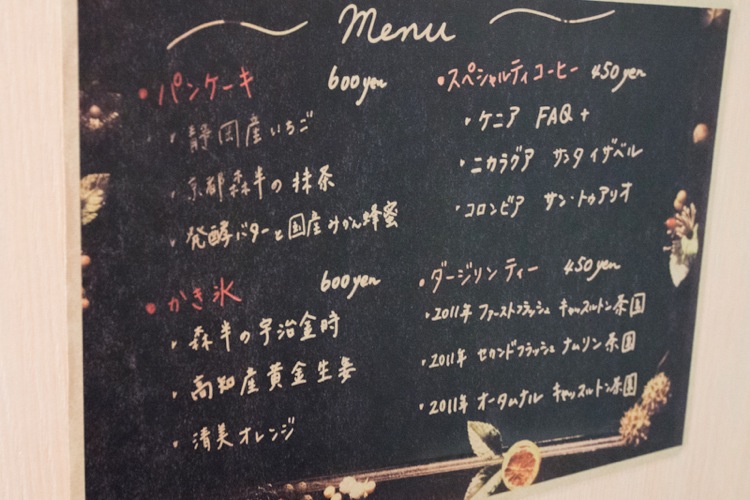 Menu
・パンケーキ 600yen
・静岡産いちご
・京都森半の抹茶
・発酵バターと国産みかん蜂蜜
・かき氷 600yen
・森半の宇治金時
・高知産黄金生姜
・清美オレンジ
・スペシャルティコーヒー 450yen
・ケニア FAQ+
・ニカラグア サンタイザベル
・コロンビア サン・トゥアリオ
・ダージリンティー 450yen
・2011年 ファーストフラッシュ キャッスルトン茶園
・2011年 セカンドフラッシュ ナムリン茶園
・2011年 オータムナル キャッスルトン茶園